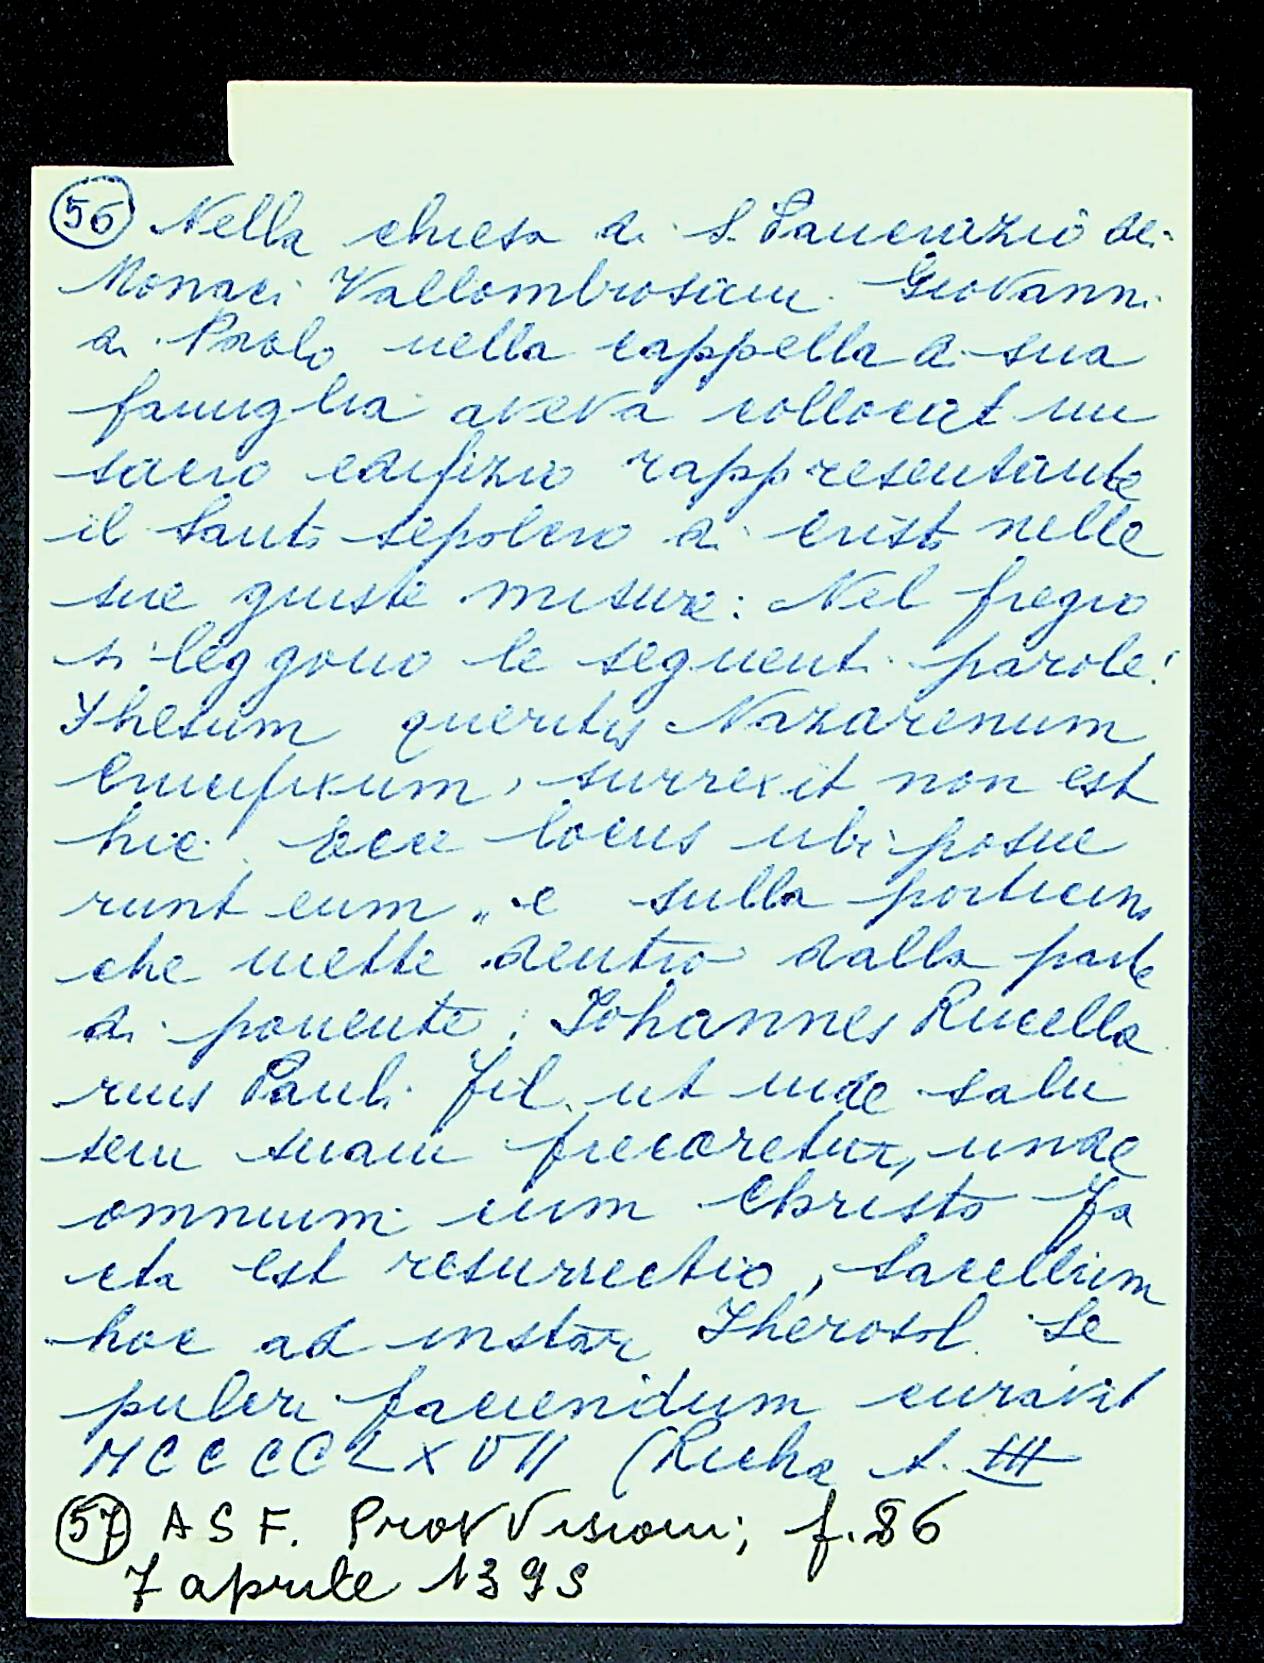 (56) Nella chiesa di S. Pancrazio dei
Monaci Vallombrosiani Giovanni
di Paolo nella cappella di sua
famiglia aveva collocat un
sacro edifizio rappresentante
il Santo sepolcro di cristo nelle
sue giuste misure: Nel fregio
si leggono le seguenti parole:
Yhesum queritis Nazarenum
Crucifixum, surrexit non est
hic. Ecce locus ubi posue
runt eum „ e sulla porticina
che mette dentro dalla parte
di ponente: Iohannes Rucella
rius Pauli fil. ut inde salu
tem suam precaretur, unde
omnium cum Christo fa
cta est resurrectio, sacellum
hoc ad instar Yherosol. Se
pulcri faciendum curavit
MCCCCLXVII (Richa t. III
(57) ASF. Provvisioni; f. 86
7 aprile 1393